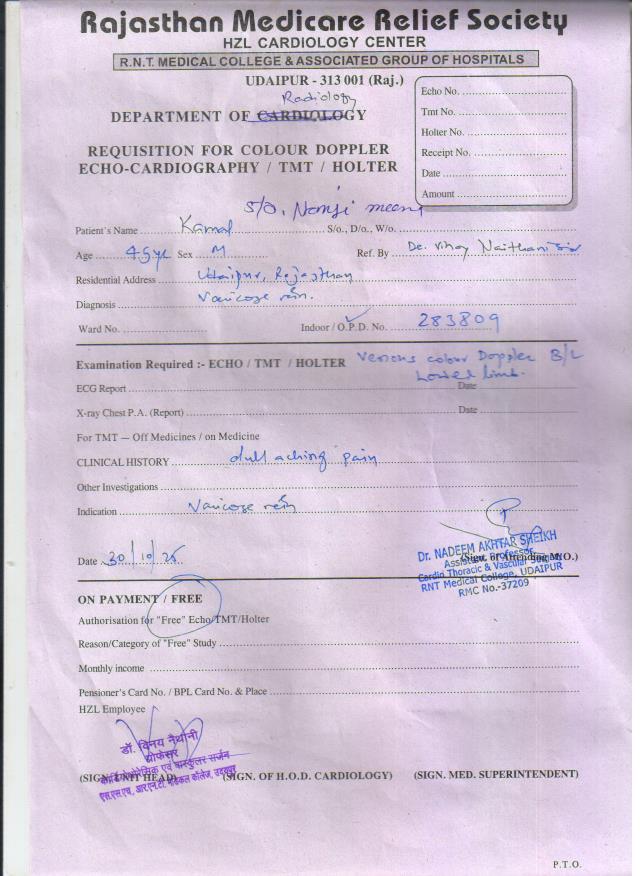 Rajasthan Medicare Relief Society
HZL CARDIOLOGY CENTER
R.N.T. MEDICAL COLLEGE & ASSOCIATED GROUP OF HOSPITALS
UDAIPUR - 313 001 (Raj.)
Radiology
DEPARTMENT OF CARDIOLOGY
REQUISITION FOR COLOUR DOPPLER
ECHO-CARDIOGRAPHY / TMT / HOLTER
Echo No.
Tmt No.
Holter No.
Receipt No.
Date
Amount
S/O,
Patient's Name Kamal S/o., D/o., W/o.
Age 45 yr Sex M Ref. By Dr. Vinay Naithani Sir
Residential Address Udaipur, Rajasthan
Diagnosis Varicose vein.
Ward No. Indoor / O.P.D. No. 283809
Examination Required :- ECHO / TMT / HOLTER Venous colour Doppler B/L
Lower limb.
ECG Report Date
X-ray Chest P.A. (Report) Date
For TMT — Off Medicines / on Medicine
CLINICAL HISTORY dull aching pain
Other Investigations
Indication Varicose vein
Date 30/10/25
(Sign. of Attending M.O.)
Dr. NADEEM AKHTAR SHEIKH
Assistant Professor
Cardio Thoracic & Vascular
RNT Medical College, UDAIPUR
RMC No.-37209
ON PAYMENT / FREE
Authorisation for "Free" Echo/TMT/Holter
Reason/Category of "Free" Study
Monthly income
Pensioner's Card No. / BPL Card No. & Place
HZL Employee
डॉ. विनय नैथानी
प्रोफेसर
कार्डियोथोरेसिक एवं वास्कुलर सर्जन
एस.एस.एच, आर.एन.टी. मेडिकल कॉलेज, उदयपुर
(SIGN. UNIT HEAD) (SIGN. OF H.O.D. CARDIOLOGY) (SIGN. MED. SUPERINTENDENT)
P.T.O.